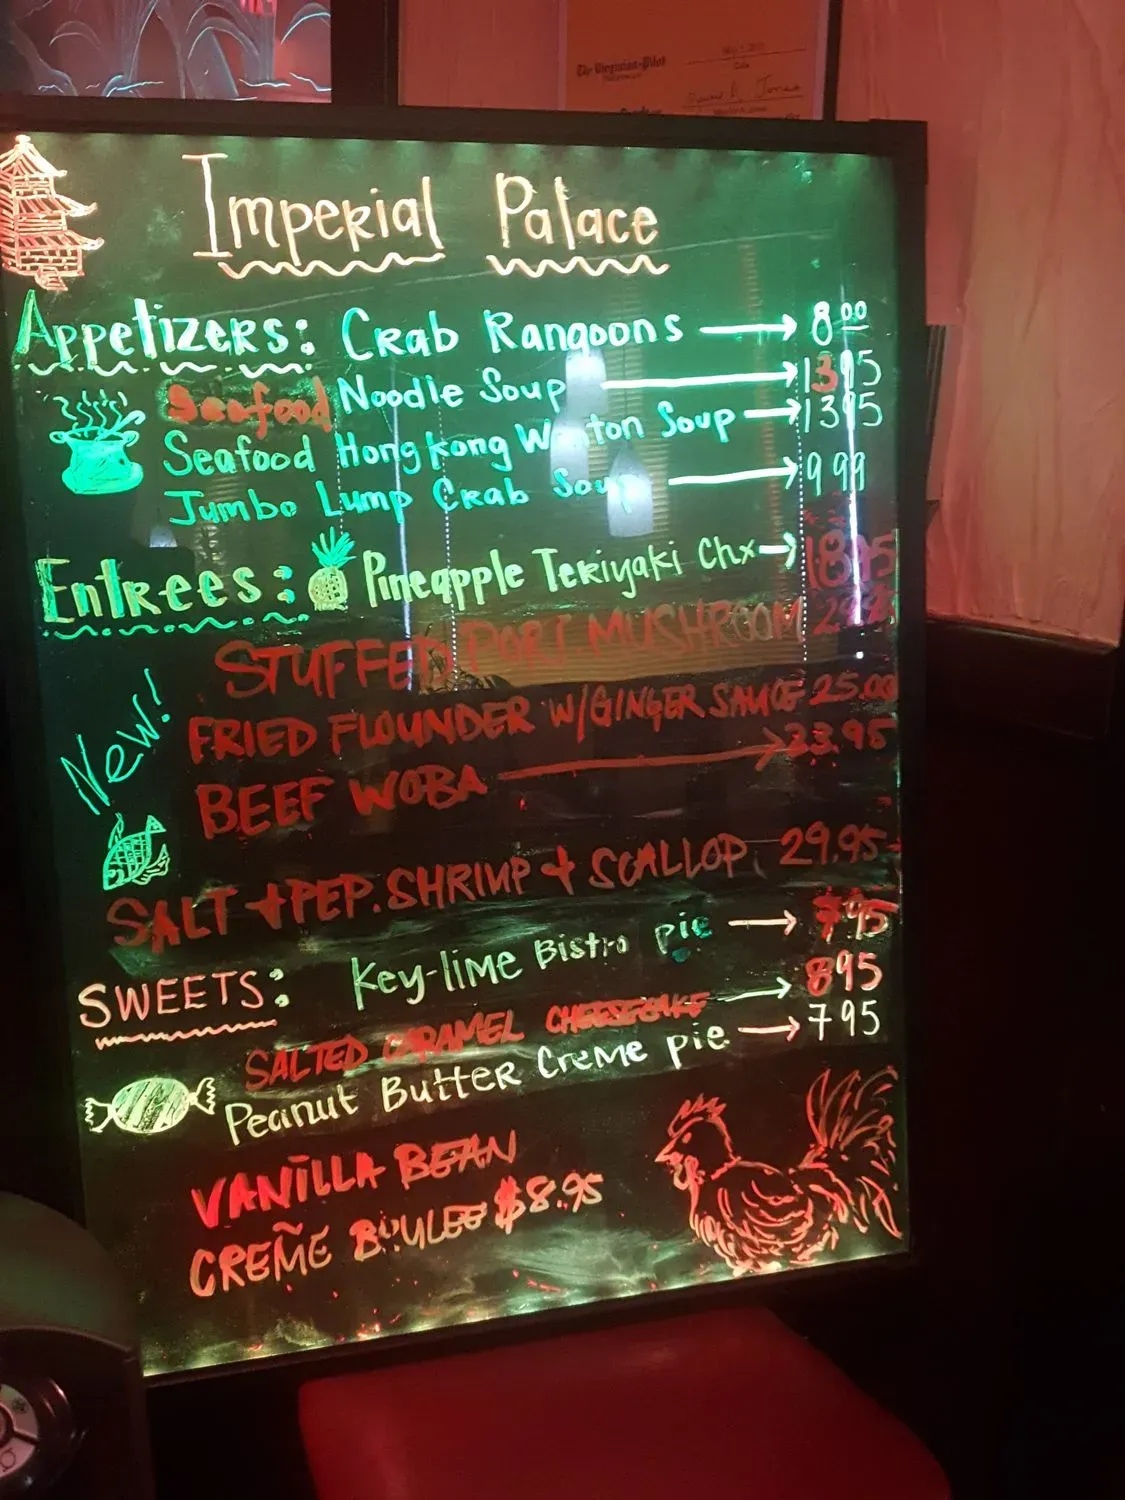 The Virginian-Pilot
Imperial Palace
Appetizers: Crab Rangoons → 8.00
Seafood Noodle Soup → 13 95
Seafood Hong Kong Wonton Soup → 13 95
Jumbo Lump Crab Soup → 9 99
Entrees: Pineapple Teriyaki Chx → 18.95
STUFFED PORT. MUSHROOM
New!
FRIED FLOUNDER W/GINGER SAUCE 25.00
BEEF WOBA → 23.95
SALT + PEP. SHRIMP + SCALLOP. 29.95
SWEETS: Key-lime Bistro pie → 7 95
SALTED CARAMEL CHEESECAKE → 8 95
Peanut Butter Creme pie → 7 95
VANILLA BEAN
CREME BULEE $8.95